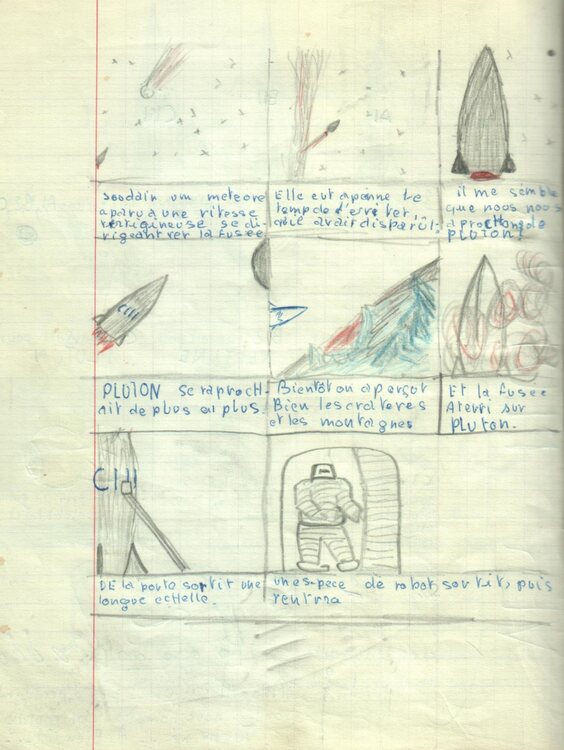 Soudain um meteore
aparu a une vitesse
vertigineuse se di-
rigeant ver la fusée
Elle eut a panne le
temp de d'esre ver,
qu'il avait disparût.
il me semble
que nous nous
aprochong de
PLUTON!
PLUTON se raproch-
ait de plus en plus.
Bientôt on aperçut
Bien les crateres
et les montagnes
Et la fusée
Aterri sur
PLUTON.
CIII
DE la porte sortit une
longue echelle.
une espece de robot sortit, puis
rentra